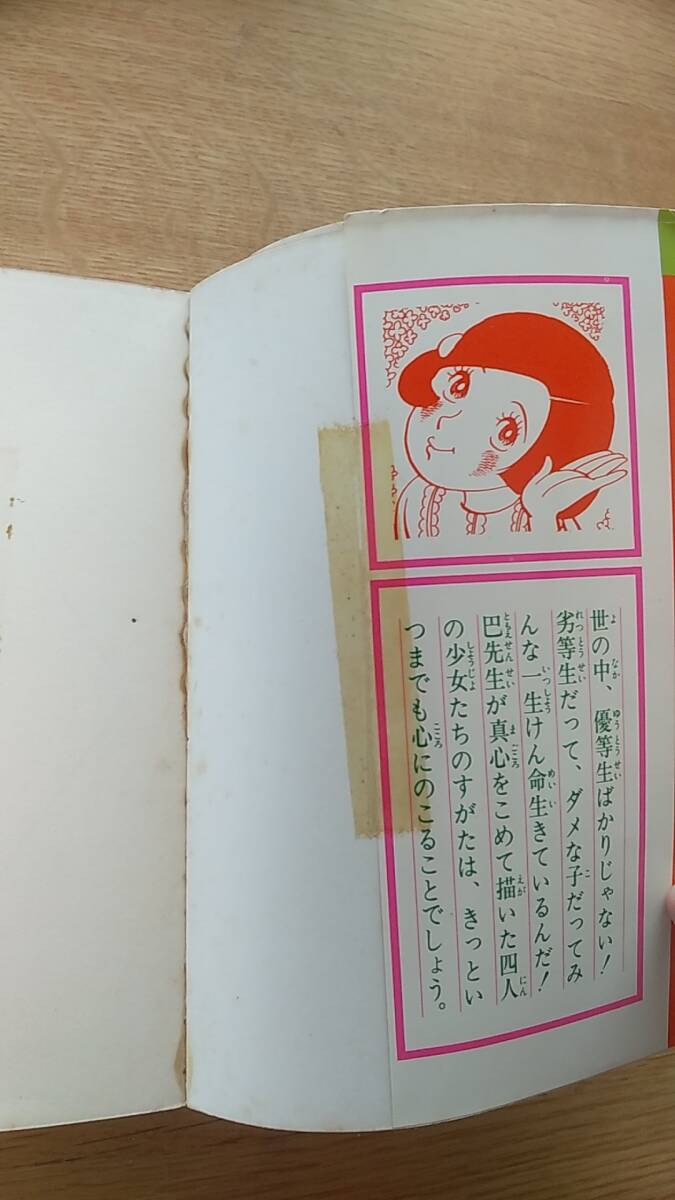 世の中、優等生ばかりじゃない！
劣等生だって、ダメな子だってみ
んな一生けん命生きているんだ！
巴先生が真心をこめて描いた四人
の少女たちのすがたは、きっとい
つまでも心にのこることでしょう。